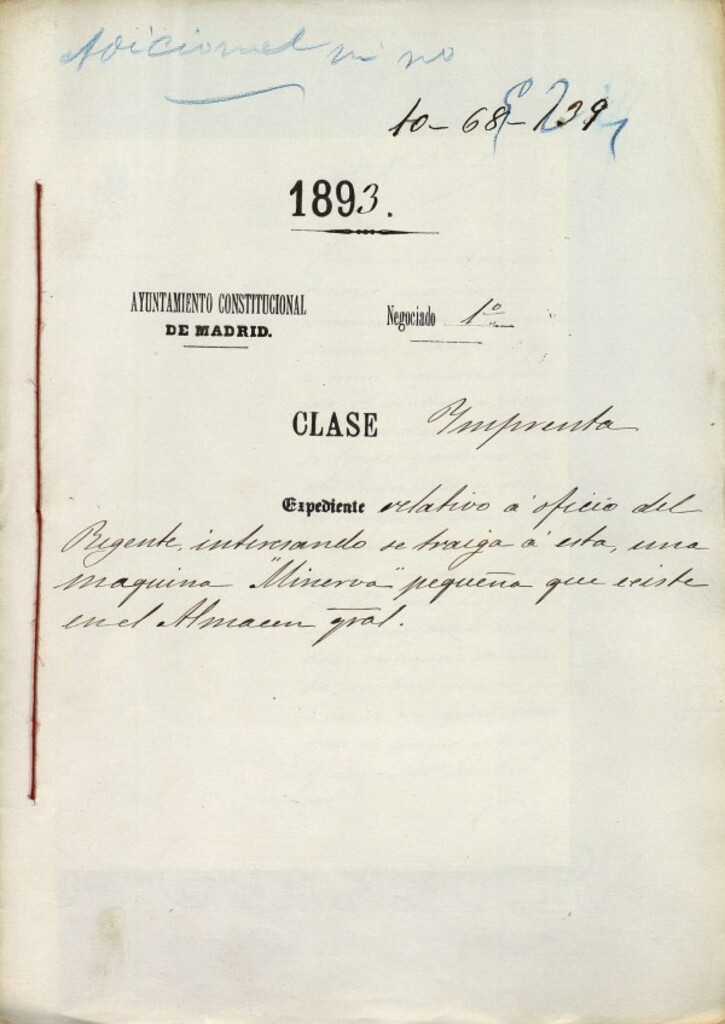 Adicional
10-68-139
1893.
AYUNTAMIENTO CONSTITUCIONAL
DE MADRID.
Negociado 1º
CLASE Ymprenta
Expediente relativo á oficio del
Regente, interesando se traiga á esta, una
maquina "Minerva" pequeña que existe
en el Almacen gral.